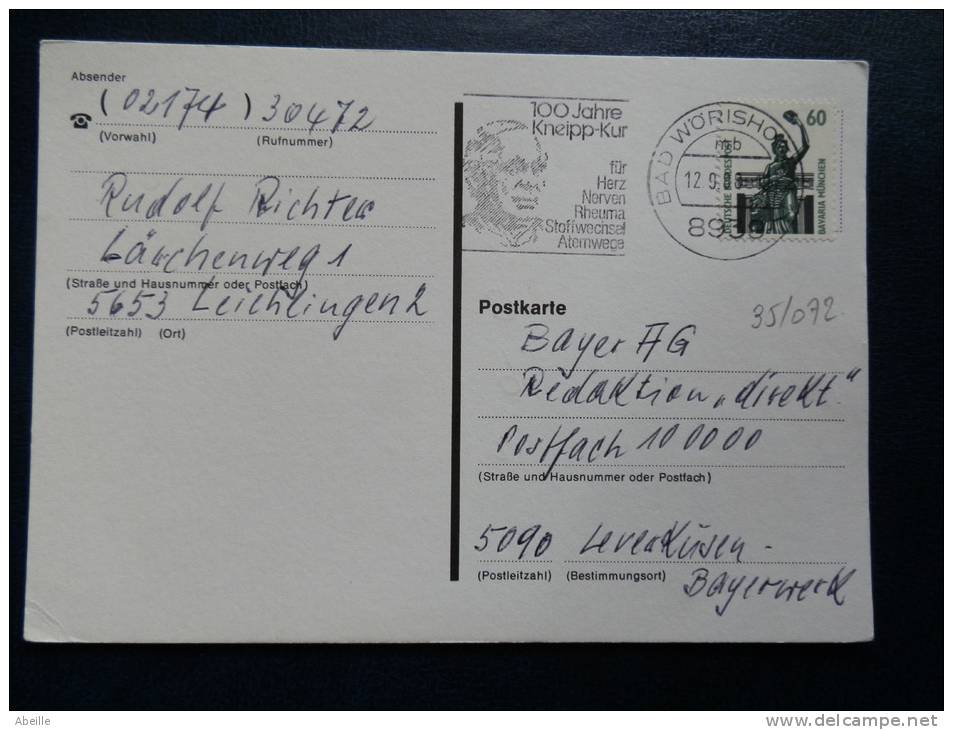 Absender
(02174) 30472
(Vorwahl) (Rufnummer)
Rudolf Richter
Lärchenweg 1
(Straße und Hausnummer oder Postfach)
5653 Leichlingen 2
(Postleitzahl) (Ort)
100 Jahre
Kneipp-Kur
für
Herz
Nerven
Rheuma
Stoffwechsel
Atemwege
BAD WÖRISHO
mb
12.9.
60
DEUTSCHE BUNDESPOST
BAVARIA MÜNCHEN
Postkarte
35/072
Bayer AG
Redaktion „direkt"
Postfach 100000
(Straße und Hausnummer oder Postfach)
5090 Leverkusen-
(Postleitzahl) (Bestimmungsort)
Bayerwerk
Abeille
www.delcampe.net